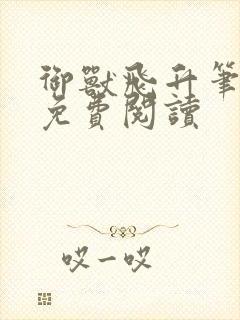 御獸飛升筆
免費閱讀
哎一哎